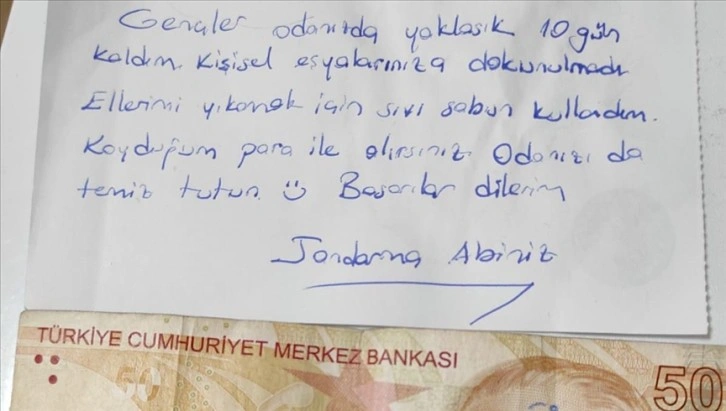 Gençler odanızda yaklaşık 10 gün
kaldım. Kişisel eşyalarınıza dokunulmadı
Ellerimi yıkamak için sıvı sabun kullandım.
Koyduğum para ile alırsınız. Odanızı da
temiz tutun Başarılar dilerim
Jandarma Abiniz
TÜRKİYE CUMHURİYET MERKEZ BANKASI
50
50